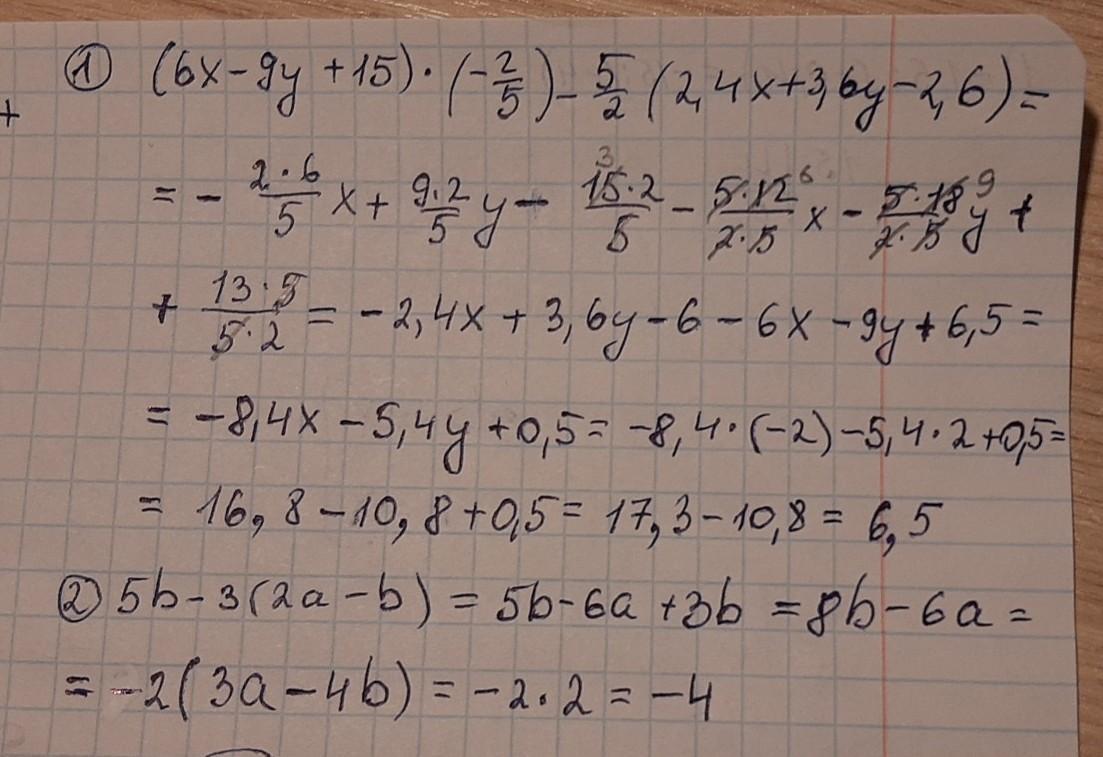 ① (6x-9y+15)·(-2/5)-5/2(2,4x+3,6y-2,6)=
+
=-2·6/5x+9·2/5y-15·2/5 3-5·12/2·5 6x-5·18/2·5 9y+
+13·5/5·2=-2,4x+3,6y-6-6x-9y+6,5=
=-8,4x-5,4y+0,5=-8,4·(-2)-5,4·2+0,5=
=16,8-10,8+0,5=17,3-10,8=6,5
② 5b-3(2a-b)=5b-6a+3b=8b-6a=
=-2(3a-4b)=-2·2=-4